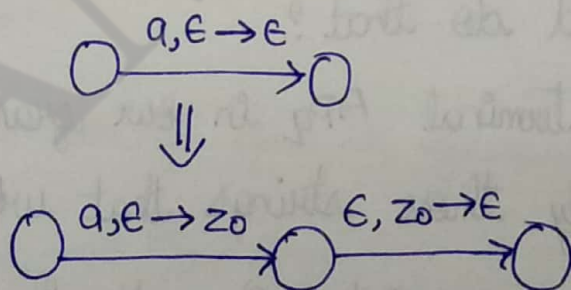 a, ϵ → ϵ
⇓
a, ϵ → z0 ϵ, z0 → ϵ